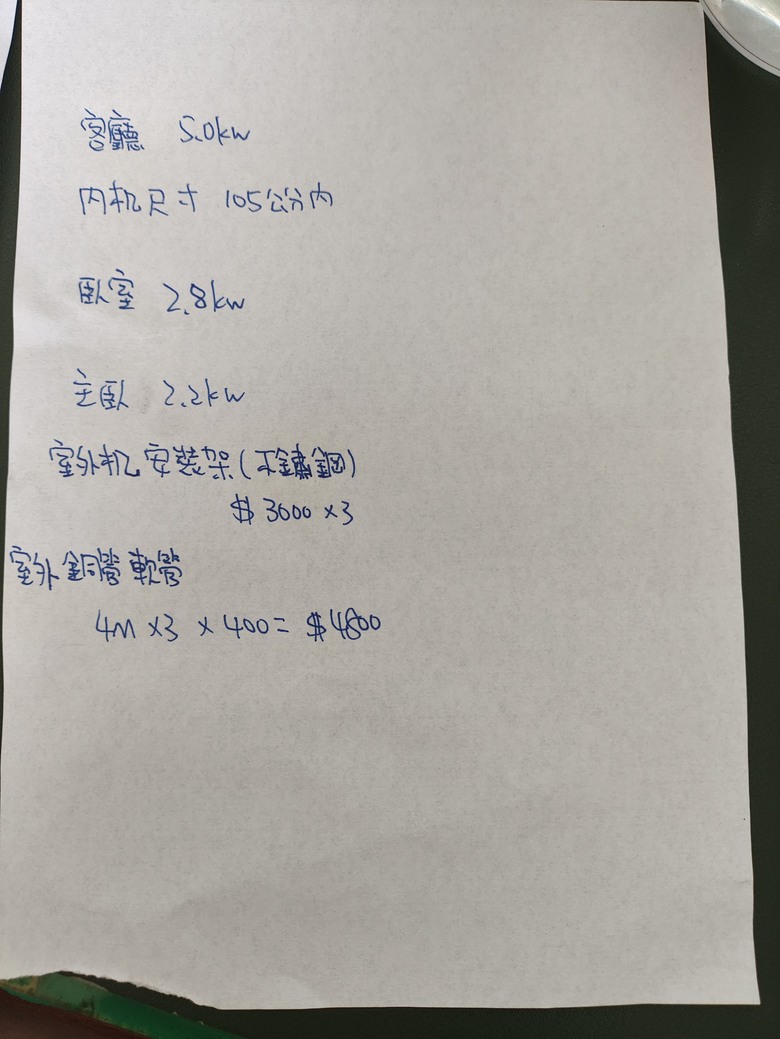 客廳 5.0kw
内机尺寸 105公分内
臥室 2.8kw
主臥 2.2kw
室外机 安裝架(不鏽鋼)
$3000×3
室外銅管軟管
4M×3×400=$4800